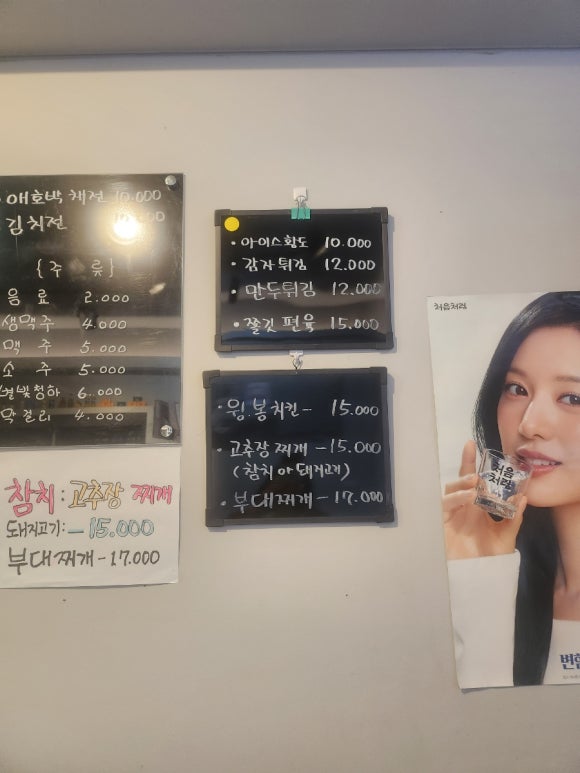 애호박 채전 10.000
김치전
{주 류}
음 료 2.000
생맥주 4.000
맥 주 5.000
소 주 5.000
별빛청하 6.000
막걸리 4.000
참치 : 고추장 찌개
돼지고기: - 15.000
부대찌개 - 17.000
• 아이스황도 10.000
• 감자튀김 12.000
• 만두튀김 12.000
• 쫄깃편육 15.000
• 윙.봉치킨 - 15.000
• 고추장찌개 - 15.000
(참치 or 돼지고기)
• 부대찌개 - 17.000
처음처럼
처음
처럼